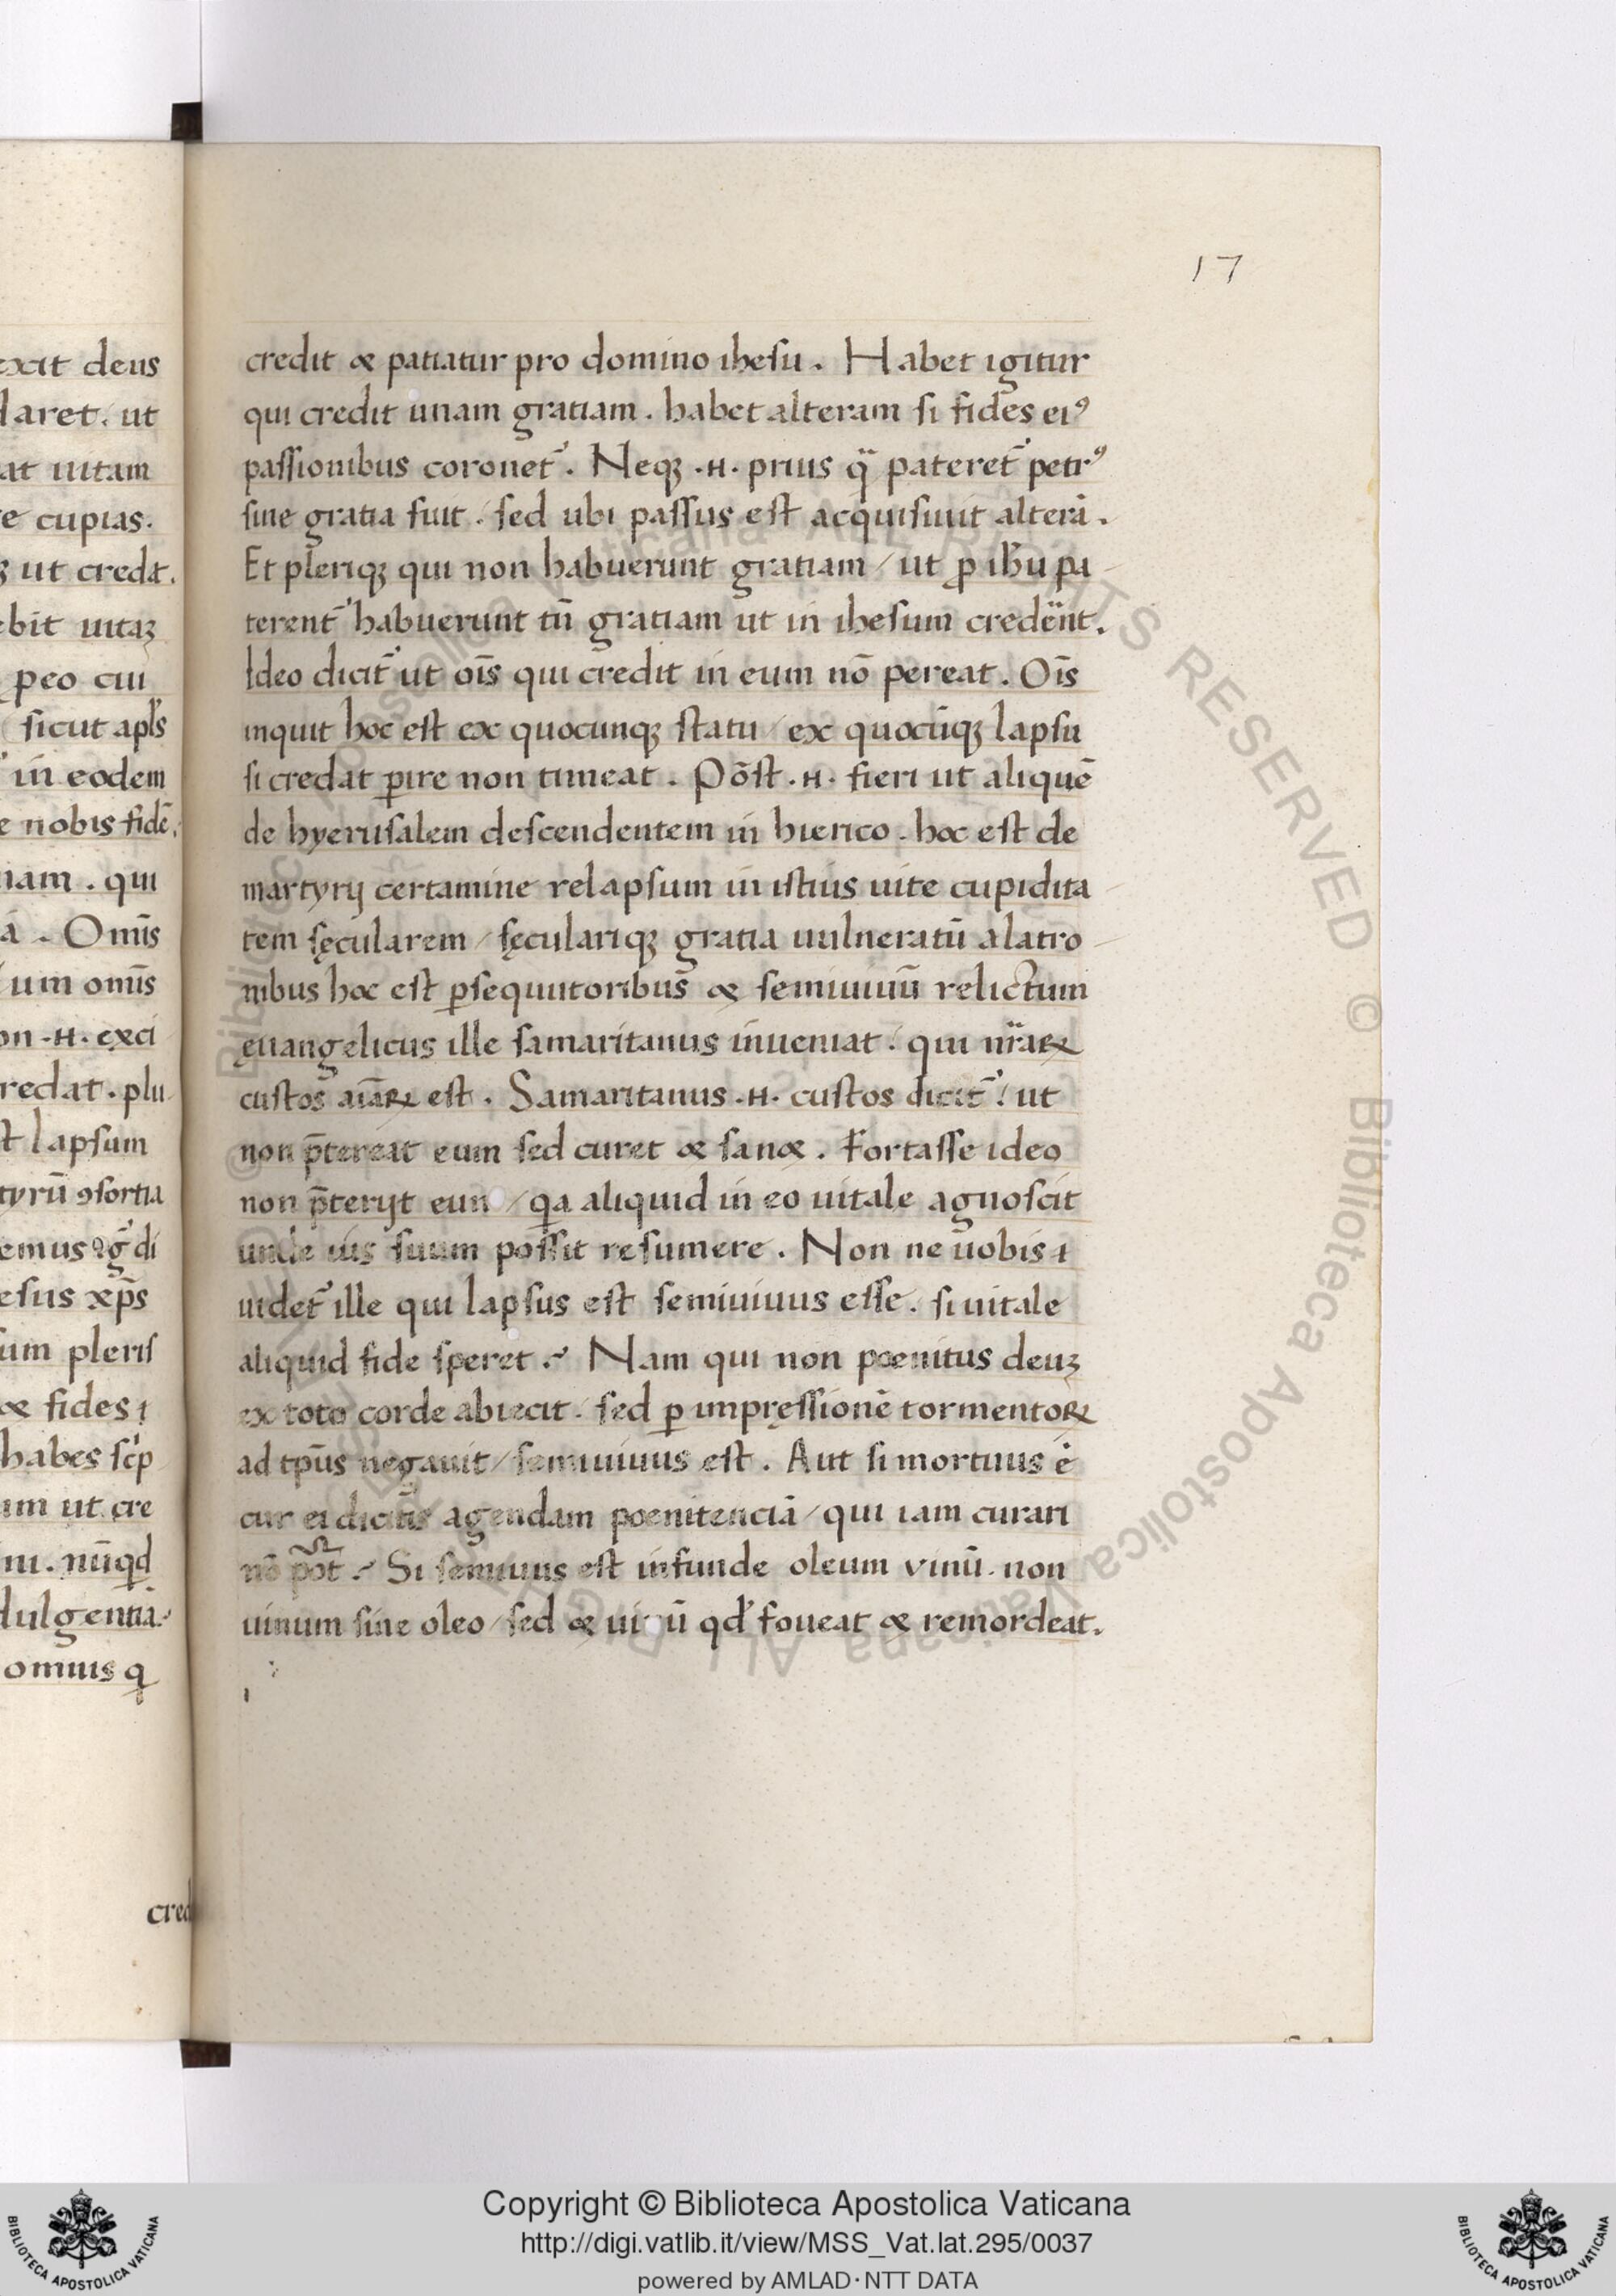 17
exit deus
laret. ut
at uitam
e cupias.
ꝫ ut credāt.
ebit uitaꝫ
ꝑeo cui
sicut apl̄s
in eodem
e nobis fidē.
nam. qui
ā. Omīs
um omīs
on .H. exci
redat. plu
t lapsum
tyrū ꝯsortia
emus g̊ di
esus xp̄s
um pleris
& fides ;
habes scͥp
um ut cre
ni. nūqd
dulgentiā.
omnis q
cred
credit & patiatur pro domino ihesu. Habet igitur
qui credit unam gratiam. habet alteram si fides eiꝰ
passionibus coronet᷑. Neqꝫ .H. prius q̄ pateret᷑ petrꝰ
sine gratia fuit. sed ubi passus est acquisiuit alterā.
Et pleriqꝫ qui non habuerunt gratiam / ut ꝓ ihū pa
terent᷑ habuerunt tn̄ gratiam ut in ihesum credēnt.
Ideo dicit᷑ ut oīs qui credit in eum nō pereat. Oīs
inquit hoc est ex quocunqꝫ statu / ex quocūqꝫ lapsu
si credat ꝑire non timeat. Pōst .H. fieri ut aliquē
de hyerusalem descendentem in hierico. hoc est de
martyrij certamine relapsum in istius uite cupidita
tem sęcularem / sęculariqꝫ gratia uulneratū a latro
nibus hoc est ꝑsequutoribus & semiuiuū relictum
ęuangelicus ille samaritanus inueniat. qui nr̄aꝝ
custos aīaꝝ est. Samaritanus .H. custos dicit᷑. ut
non p̄tereat eum sed curet & san&. Fortasse ideo
non p̄terijt eum / qͥa aliquid in eo uitale agnoscit
unde ius suum possit resumere. Non ne uobis ;
uidet᷑ ille qui lapsus est semiuiuus esse. si uitale
aliquid fide speret.~ Nam qui non poenitus deuꝫ
ex toto corde abiecit. sed ꝑ impręssionē tormentoꝝ
ad tp̄us negauit / semiuiuus est. Aut si mortuus ē
cur ei dicitis agendam poenitenciā / qui iam curari
nō pōt.~ Si semiuus est infunde oleum vinū. non
uinum sine oleo / sed & uinū qd᷑ foueat & remordeat.
Copyright © Biblioteca Apostolica Vaticana
http://digi.vatlib.it/view/MSS_Vat.lat.295/0037
powered by AMLAD·NTT DATA
BIBLIOTECA APOSTOLICA VATICANA
BIBLIOTECA APOSTOLICA VATICANA